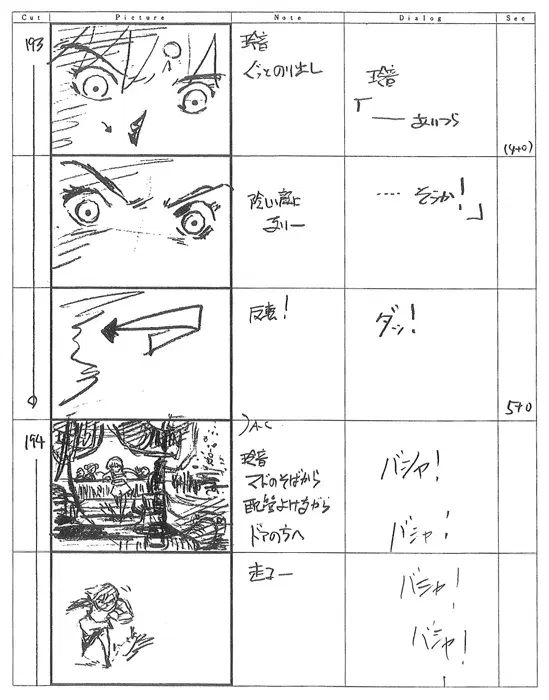 Cut Picture Note Dialog Sec
193
玲音
ぐっとのり出し
玲音
「
—— あいつら
(4+0)
険しい表情
‥‥ そうか!」
反転!
ダッ!
5+0
194
A.C
玲音
マドのそばから
配管よけながら
ドアの方へ
バシャ!
バシャ!
走る—
バシャ!
バシャ!